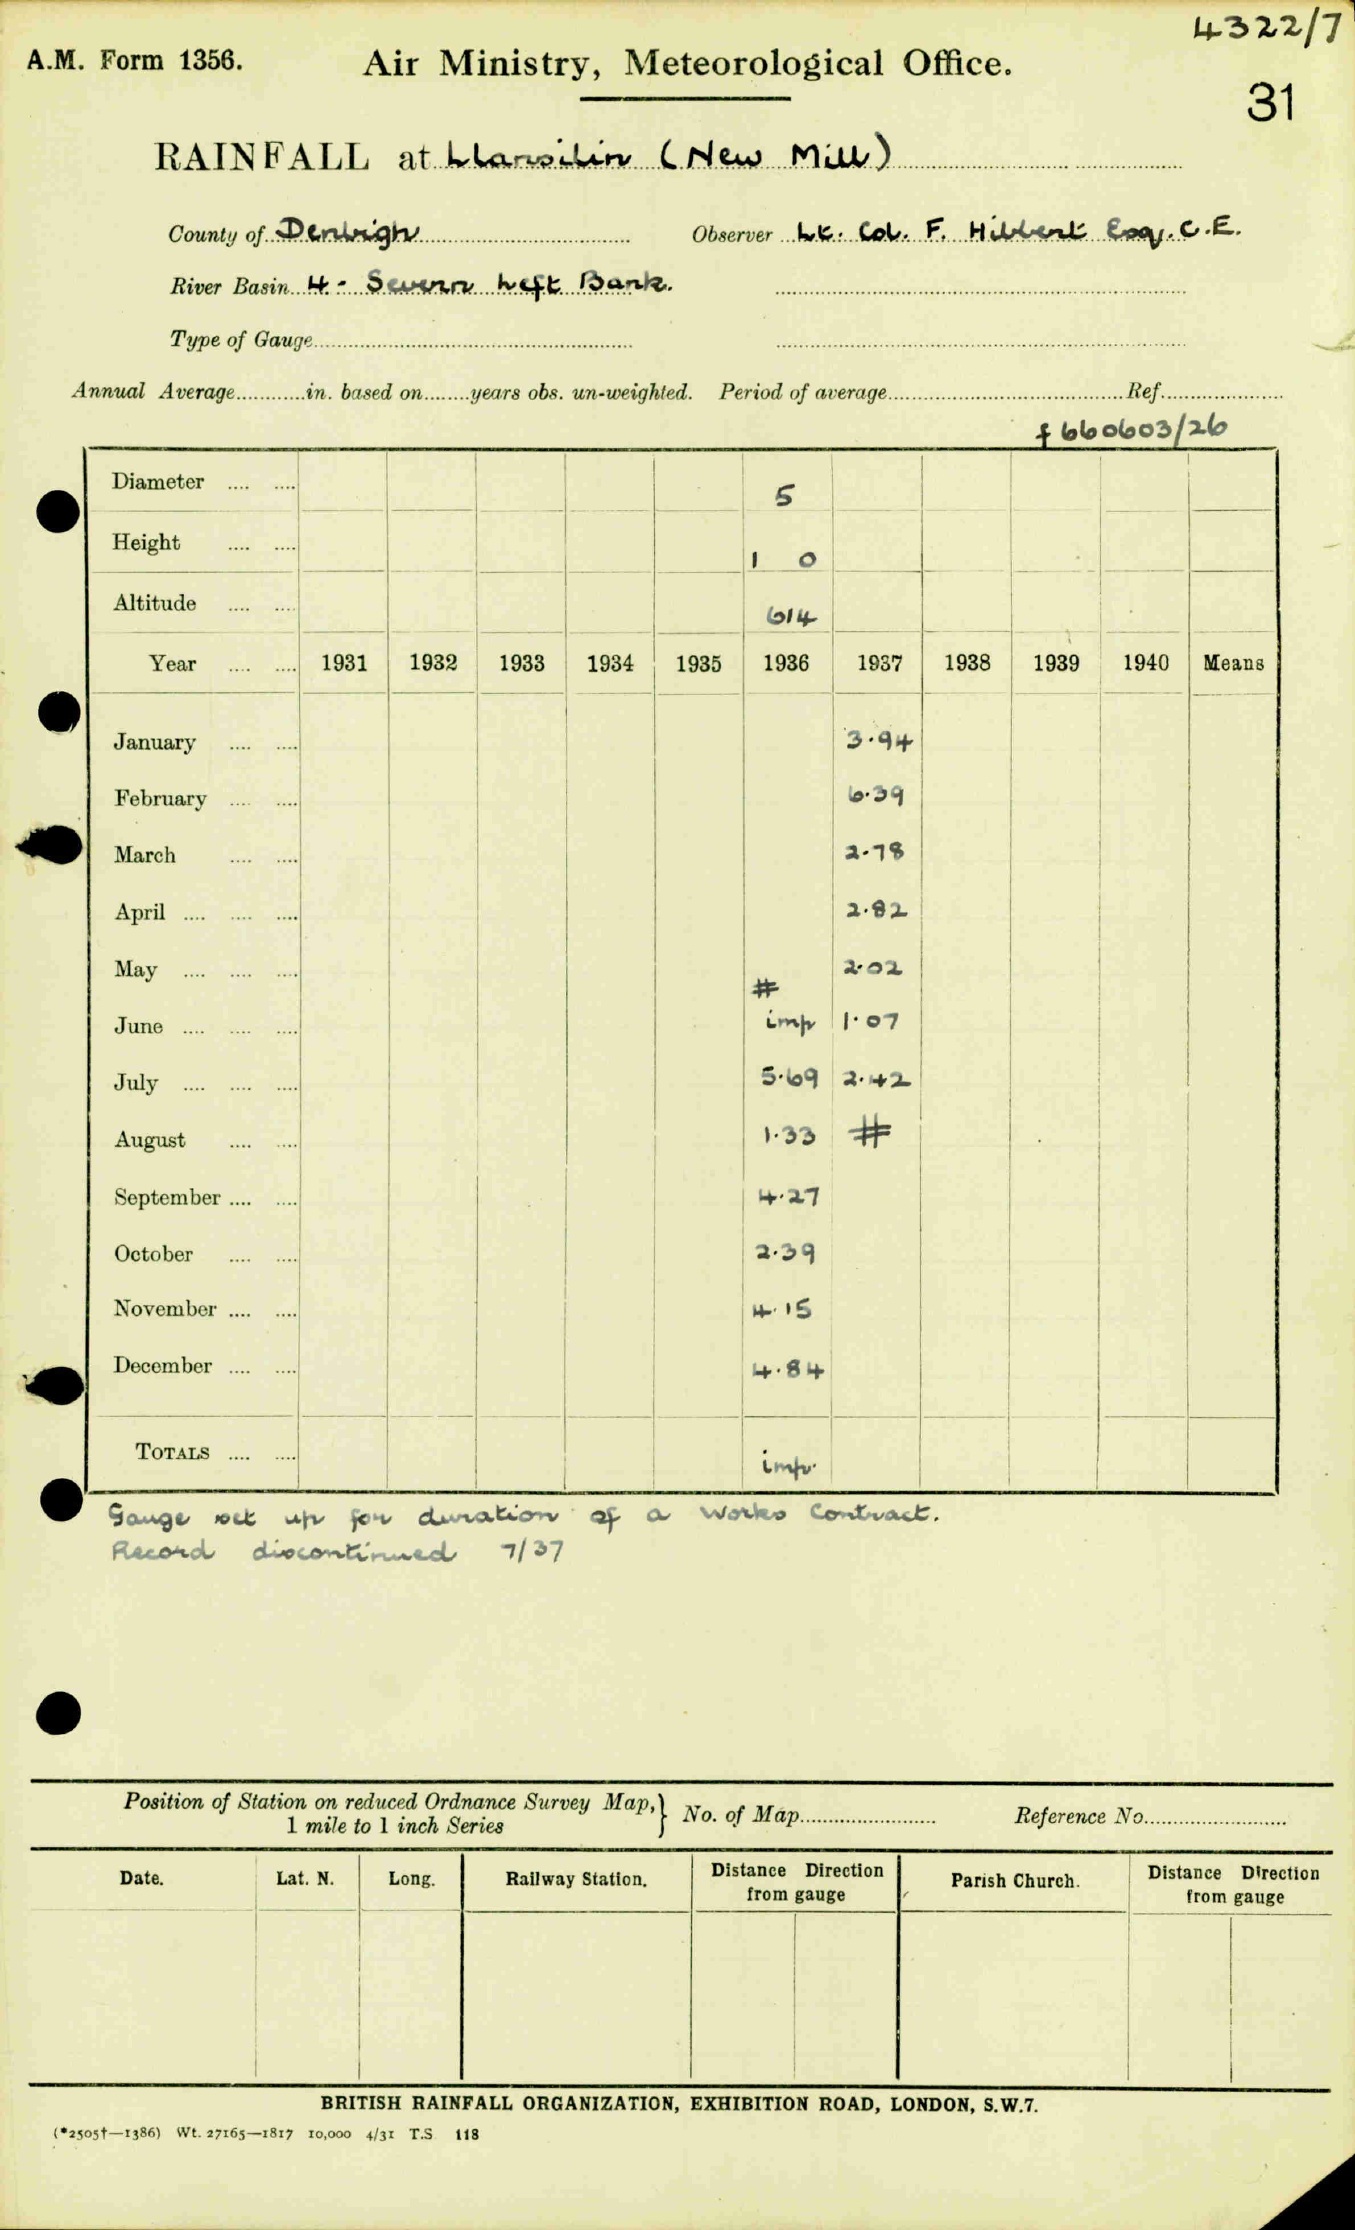 4322/7
A.M. Form 1356.
Air Ministry, Meteorological Office.
31
RAINFALL at Llansilin (New Mill)
County of Denbigh Observer Lt. Col. F. Hibbert Esq. C.E.
River Basin 4 - Severn Left Bank.
Type of Gauge
Annual Average............in. based on........years obs. un-weighted. Period of average Ref.
f 660603/26
Diameter .... .... 5
Height .... .... 1 0
Altitude .... .... 614
Year .... .... 1931 1932 1933 1934 1935 1936 1937 1938 1939 1940 Means
January .... .... 3.94
February .... .... 6.39
March .... .... 2.78
April .... .... .... 2.82
May .... .... .... 2.02
#
June .... .... .... imp 1.07
July .... .... .... 5.69 2.42
August .... .... 1.33 #
September .... .... 4.27
October .... .... 2.39
November .... .... 4.15
December .... .... 4.84
TOTALS .... .... imp.
Gauge set up for duration of a Works Contract.
Record discontinued 7/37
Position of Station on reduced Ordnance Survey Map, 1 mile to 1 inch Series } No. of Map Reference No.
Date. Lat. N. Long. Railway Station. Distance Direction from gauge Parish Church. Distance Direction from gauge
BRITISH RAINFALL ORGANIZATION, EXHIBITION ROAD, LONDON, S.W.7.
(*2505†—1386) Wt. 27165—1817 10,000 4/31 T.S 118